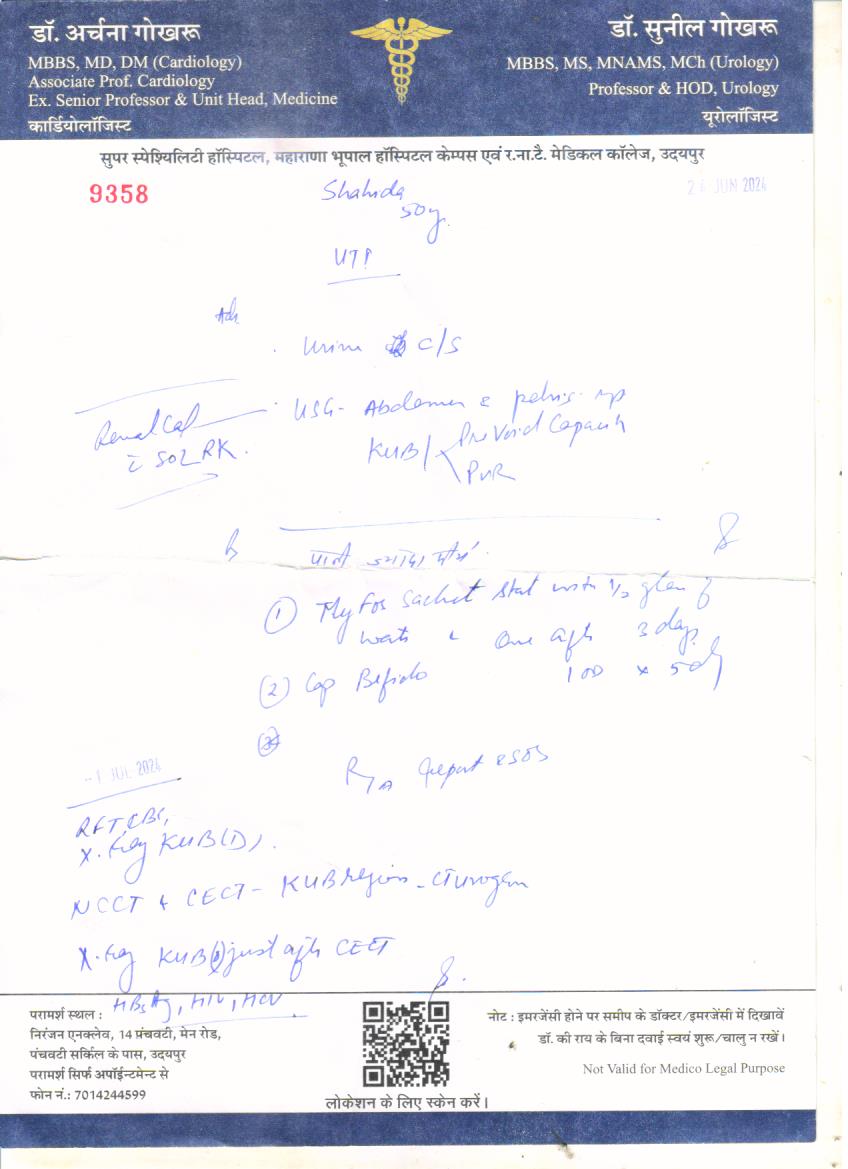 डॉ. अर्चना गोखरू
MBBS, MD, DM (Cardiology)
Associate Prof. Cardiology
Ex. Senior Professor & Unit Head, Medicine
कार्डियोलॉजिस्ट
डॉ. सुनील गोखरू
MBBS, MS, MNAMS, MCh (Urology)
Professor & HOD, Urology
यूरोलॉजिस्ट
सुपर स्पेश्यिलिटी हॉस्पिटल, महाराणा भूपाल हॉस्पिटल केम्पस एवं र.ना.टै. मेडिकल कॉलेज, उदयपुर
9358
JUN 2024
Shahida
50y.
UTI
Adv
Urine C/S
USG- Abdomen & pelvis
KUB/ PreVoid Capacity
PVR
Renal Cal
c SOL RK.
पानी ज्यादा पीयें.
① Myfos Sachet Stat with 1/2 glass of
water & One after 3 days
② Cap Bifido 1OD x 5 day
R/A report & SOS
-1 JUL 2024
RFT, CBC,
X-Ray KUB (D).
NCCT & CECT- KUB region - CT urogram
X-Ray KUB just after CECT
HBsAg, HIV, HCV
परामर्श स्थल :
निरंजन एनक्लेव, 14 पंचवटी, मेन रोड,
पंचवटी सर्किल के पास, उदयपुर
परामर्श सिर्फ अपॉईन्टमेन्ट से
फोन नं.: 7014244599
लोकेशन के लिए स्केन करें।
नोट : इमरजेंसी होने पर समीप के डॉक्टर/इमरजेंसी में दिखावें
डॉ. की राय के बिना दवाई स्वयं शुरू/चालु न रखें।
Not Valid for Medico Legal Purpose